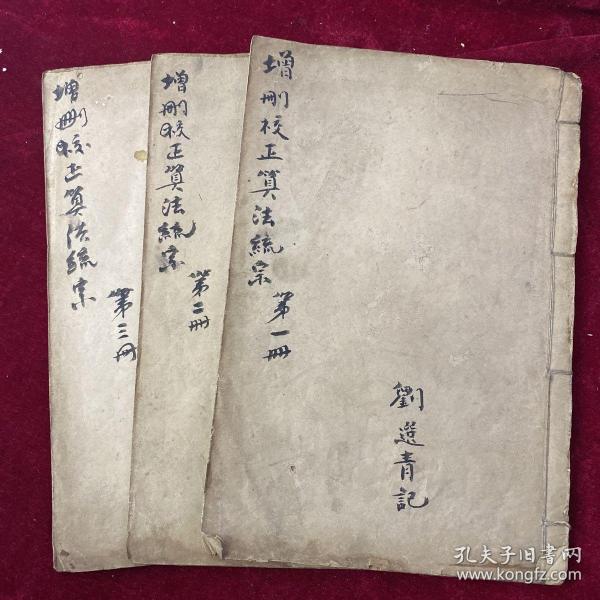 增刪校正算法統宗
第一冊
劉選青記
增刪校正算法統宗
第二冊
增刪校正算法統宗
第三冊
孔夫子旧书网
www.kongfz.com